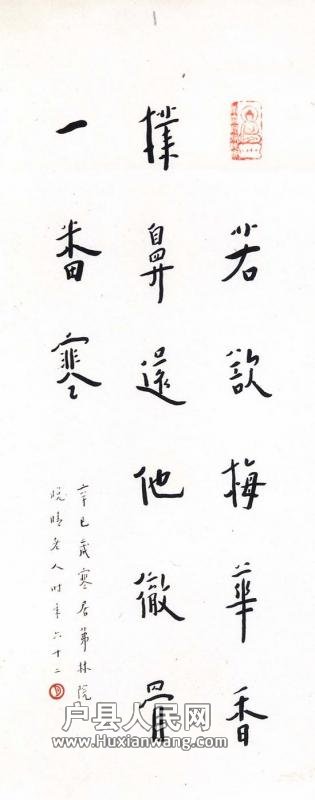 若欲梅華香
撲鼻還他徹骨
一番寒
辛巳歲寒居茀林院
晚晴老人時年六十二
户县人民网
www.Huxianwang.com